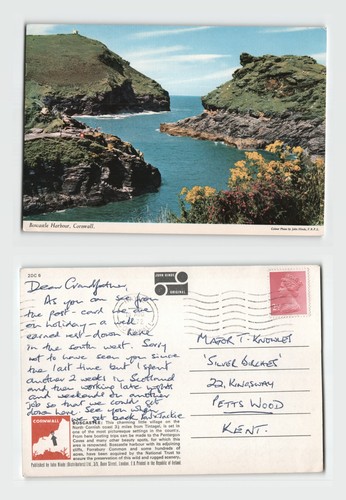 Boscastle Harbour, Cornwall.
Colour Photo by John Hinde, F.R.P.S.
2DC 8
JOHN HINDE
ORIGINAL
Dear Grandfather,
As you can see from
the post-card we are
on holiday - a well
earned rest - down here
in the south west. Sorry
not to have seen you since
the last time but I spent
another 2 weeks in Scotland
and then working late nights
and weekends on another
job so that we could get
down here. See you when
we get back
MAJOR T. KNOWLES
'SILVER BIRCHES'
22, KINGSWAY
PETTS WOOD
KENT.
CORNWALL
BOSCASTLE: This charming little village on the
North Cornish coast 3½ miles from Tintagel, is set in
one of the most picturesque settings in the country.
From here boating trips can be made to the Pentargon
Caves and many other beauty spots, for which this
area is renowned. Boscastle harbour with its adjoining
cliffs, Forrabury Common and some hundreds of
acres have been acquired by the National Trust to
ensure the preservation of this wild and rugged scenery.
Published by John Hinde (Distributors) Ltd., Street, London, Printed in the Republic of Ireland